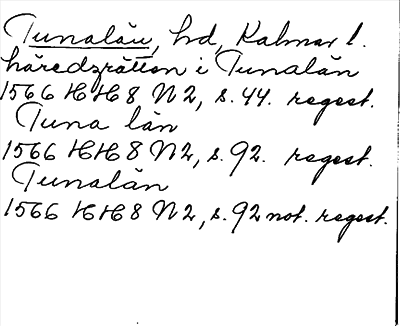 Tunalän, hd, Kalmar l.
häredzrätten i Tunalän
1566 HH8 N2, s. 44. regest.
Tuna län
1566 HH8 N2, s. 92. regest.
Tunalän
1566 HH8 N2, s. 92 not. regest.